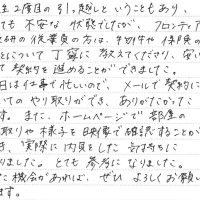 生2度目の引っ越しということもあり
ても不安な状態でしたが、フロンティア
研の従業員の方は、契約や保険の
とについて丁寧に教えてくださり、安心
て契約を進めることができました。
日は仕事で忙しいので、メールで契約に
いてのやり取りができ、ありがたかった
す。また、ホームページで部屋の
取りや様子を映像で確認することが
き、実際に内見をした気持ちに
りました。とても参考になりました。
た機会があれば、ぜひよろしくお願い
ます。